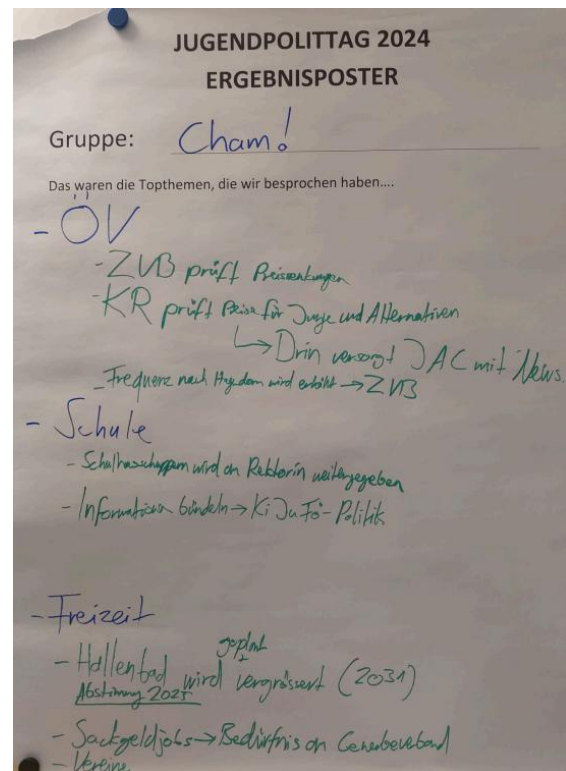 JUGENDPOLITTAG 2024
ERGEBNISPOSTER
Gruppe: Cham!
Das waren die Topthemen, die wir besprochen haben....
- ÖV
- ZVB prüft Preissenkungen
- KR prüft Preise für Junge und Alternativen
↳ Drin versorgt JAC mit News.
- Frequenz nach wird erhöht → ZVB
- Schule
- wird an Rektorin weitergegeben
- Informationen bündeln → KiJuFö-Politik
- Freizeit
geplant
- Hallenbad wird vergrössert (2031)
Abstimmung
- Sackgeldjobs → Bedürfnis an Gewerbeverband
- Vereine